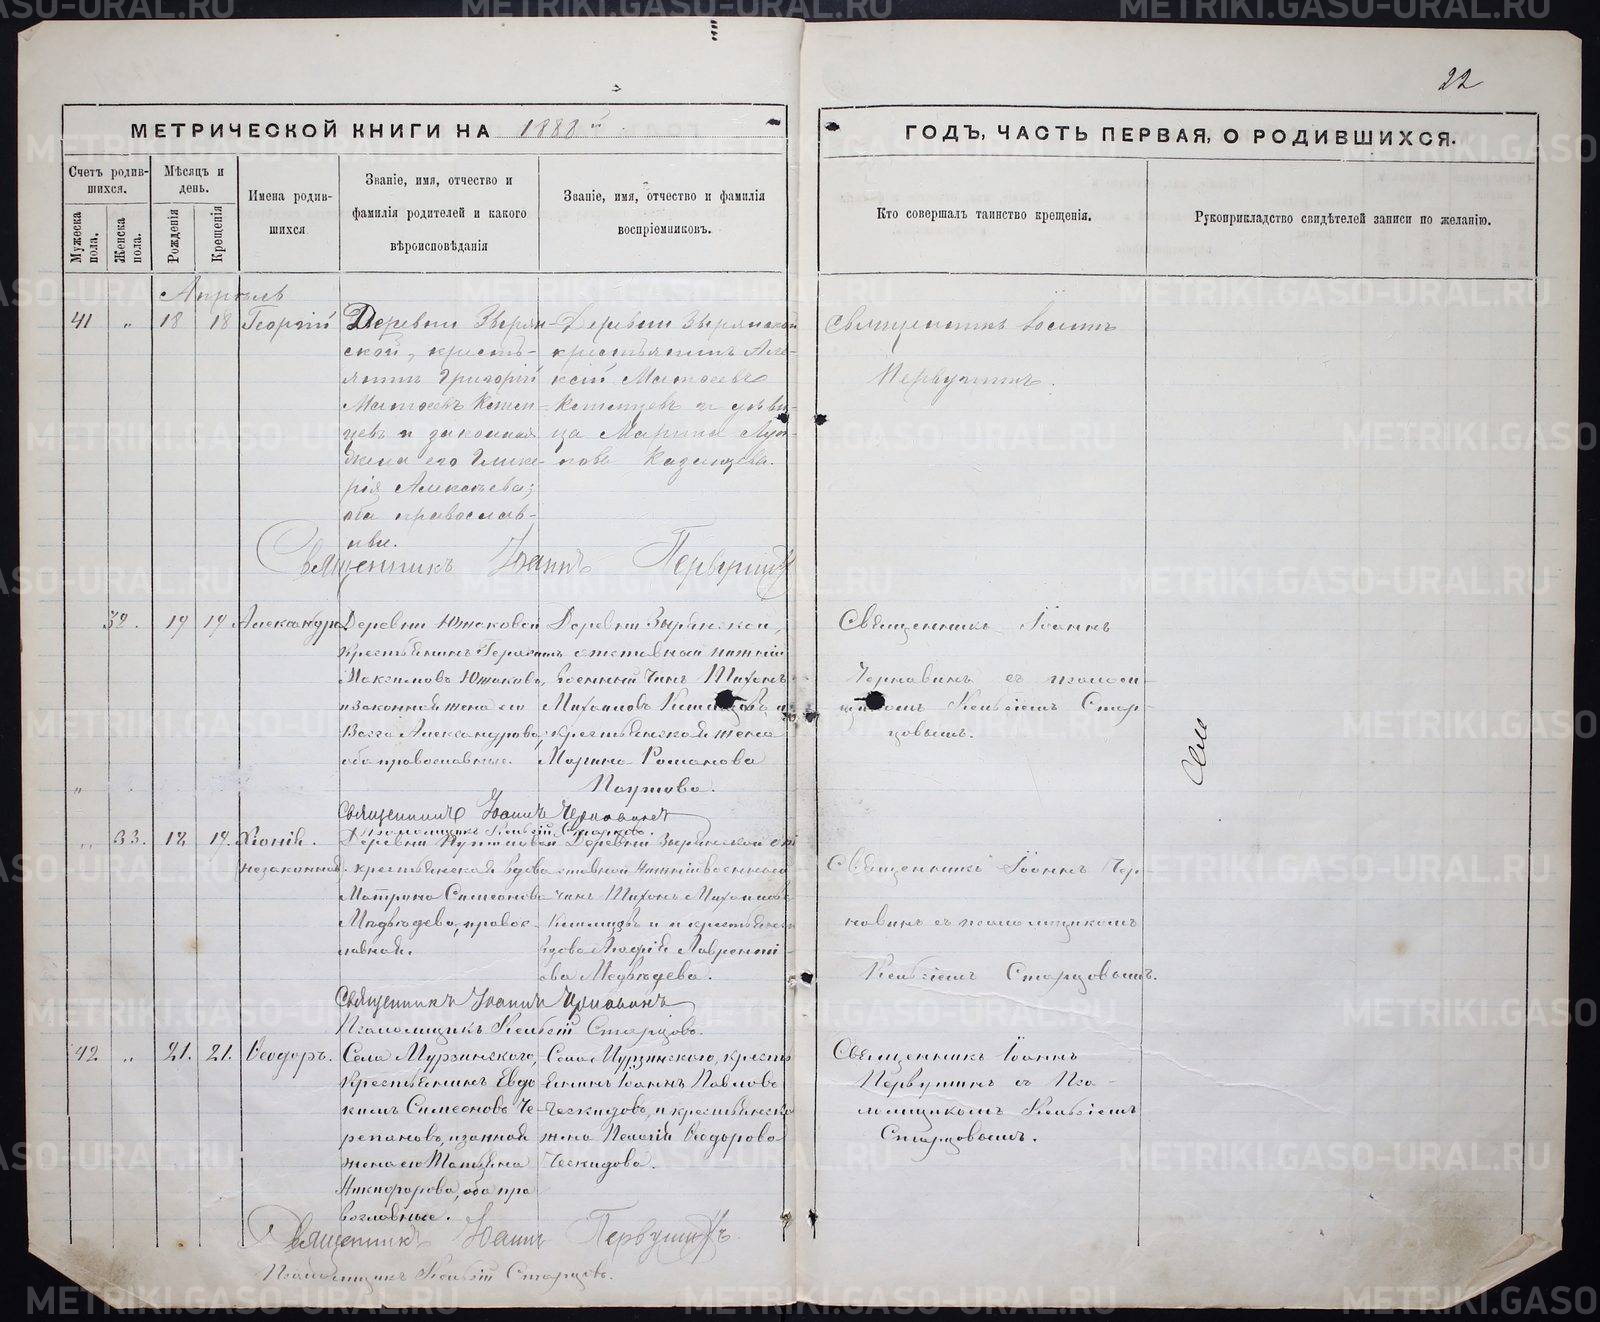 22
МЕТРИЧЕСКОЙ КНИГИ НА 1888й
ГОДЪ, ЧАСТЬ ПЕРВАЯ, О РОДИВШИХСЯ.
Счетъ родив-
шихся.
Мужеска пола.
Женска пола.
Мѣсяцъ и
день.
Рожденія
Крещенія
Имена родив-
шихся
Званіе, имя, отчество и
фамилія родителей и какого
вѣроисповѣданія
Званіе, имя, отчество и фамилія
воспріемниковъ.
Кто совершалъ таинство крещенія.
Рукоприкладство свидѣтелей записи по желанію.
Апрѣль
41 " 18 18 Георгій
Деревни Зырян-
ской, кресть-
янинъ Григорій
женa его Глике-
рія Алексѣева;
оба православ-
ные.
Деревни Зырянской
крестьянинъ Але-
ксій
и дѣви-
ца Марина
Священникъ
Первушинъ.
Священникъ Іоаннъ Первушинъ
32. 19 19 Александра
Деревни Южаковой
крестьянинъ Герасимъ
Максимовъ Южаковъ,
и законная жена его
Васса Александрова,
оба православные.
Деревни Зырянской,
отставной нижній
военный чинъ Тихонъ
Михаиловъ
крестьянская жена
Марина Романова
Священникъ Іоаннъ
Чернавинъ съ псалом-
щикомъ Старцовымъ.
Священникъ Іоаннъ Чернавинъ
Псаломщикъ Старцовъ.
" 33. 18 19. Хіонія.
незаконная
Деревни
крестьянская вдова
Матрона Симеонова
Медвѣдева, правос-
лавная.
Деревни Зырянской от-
ставной нижній военнаго
чинъ Тихонъ Михаиловъ
вдова Лаврентi-
ева Медвѣдева.
Священникъ Іоаннъ Чер-
навинъ съ псаломщикомъ
Старцовымъ.
Священникъ Іоаннъ Чернавинъ
Псаломщикъ Старцовъ.
42. " 21. 21. Ѳеодоръ.
Села Мурзинскаго,
крестьянинъ Евдо-
кимъ Симеоновъ Че-
репановъ, и законная
жена его Татіана
Никифорова, оба пра-
вославные.
Села Мурзинскаго, кресть-
янинъ Іоаннъ Павловъ
Ческидовъ, и крестьянская
жена Пелагія Ѳеодорова
Ческидова.
Священникъ Іоаннъ
Первушинъ съ Пса-
ломщикомъ
Старцовымъ.
Священникъ Іоаннъ Первушинъ
Псаломщикъ Старцовъ.
METRIKI.GASO-URAL.RU